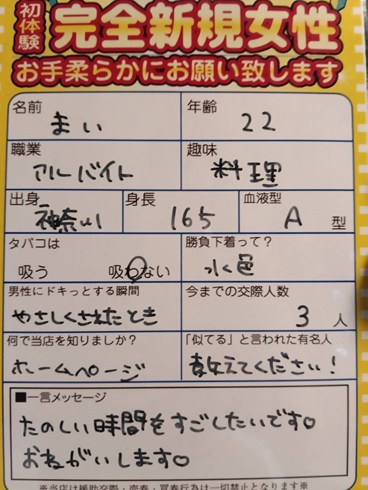 初体験
完全新規女性
お手柔らかにお願い致します
名前 まい
年齢 22
職業 アルバイト
趣味 料理
出身 神奈川
身長 165
血液型 A 型
タバコは
吸う 吸わない
勝負下着って？
水色
男性にドキっとする瞬間
やさしくされたとき
今までの交際人数
3 人
何で当店を知りましたか？
ホームページ
「似てる」と言われた有名人
教えてください！
■一言メッセージ
たのしい時間をすごしたいです♡
おねがいします♡
※当店は援助交際・売春・買春行為は一切禁止となります※